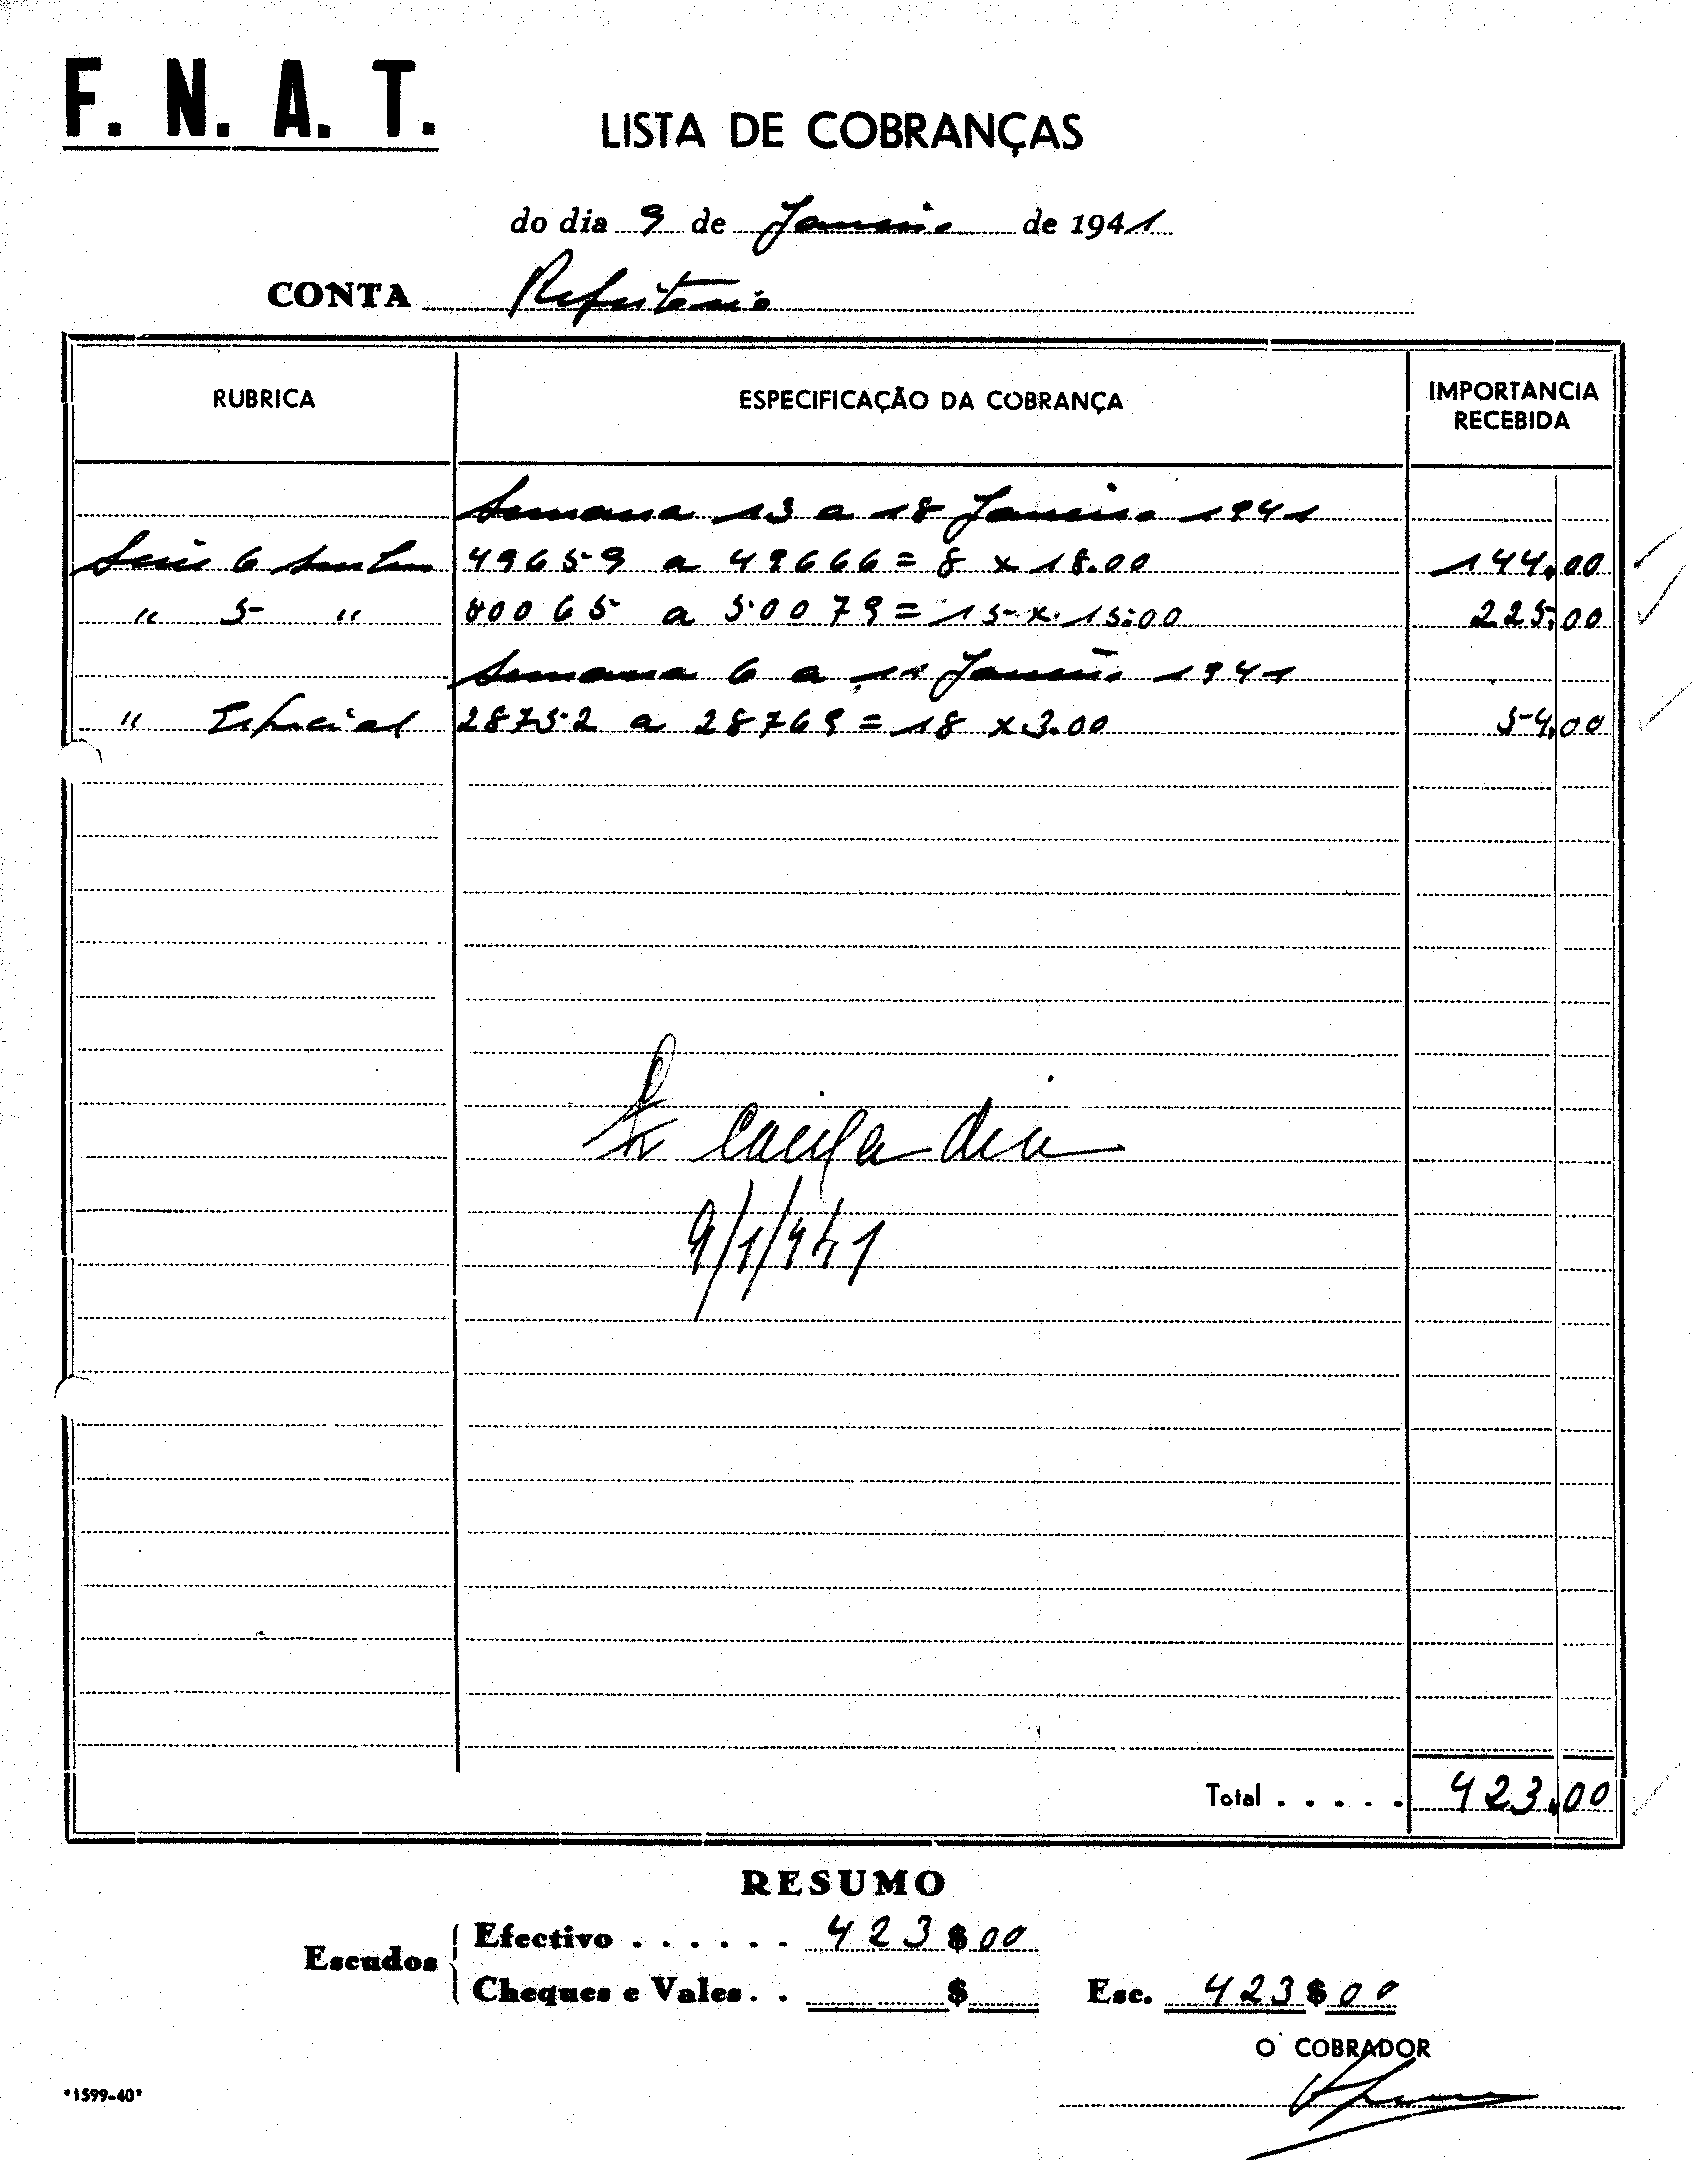 F. N. A. T.
LISTA DE COBRANÇAS
do dia 9 de Janeiro de 1941
CONTA Refeitorio
RUBRICA ESPECIFICAÇÃO DA COBRANÇA IMPORTANCIA RECEBIDA
Semana 13 a 18 Janeiro 1941
6 senhas 49659 a 49666 = 8 x 18.00 144.00
" 5 " 80065 a 50079 = 15 x 15.00 225.00
Semana 6 a 11 Janeiro 1941
" Especial 28752 a 28769 = 18 x 3.00 54.00
dia
9/1/941
Total . . . . . 423.00
RESUMO
Escudos
Efectivo . . . . . . 423$00
Cheques e Vales . . $ Esc. 423$00
O COBRADOR
"1599-40"